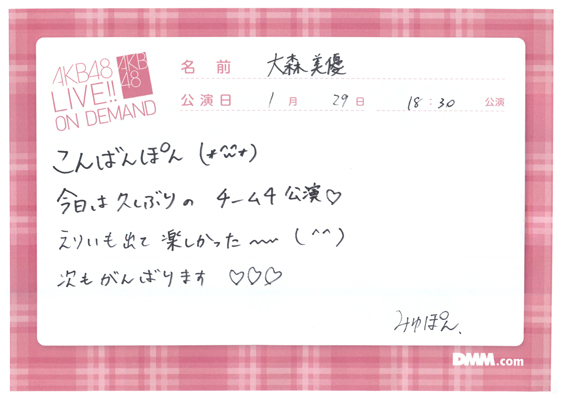 AKB48
LIVE!!
ON DEMAND
AKB
48
名前 大森美優
公演日 1月 29日 18:30 公演
こんばんぽん (*^^*)
今日は久しぶりの チーム4 公演♡
えりいも出て 楽しかった〜〜 (^^)
次もがんばります ♡♡♡
みゆぽん、
DMM.com